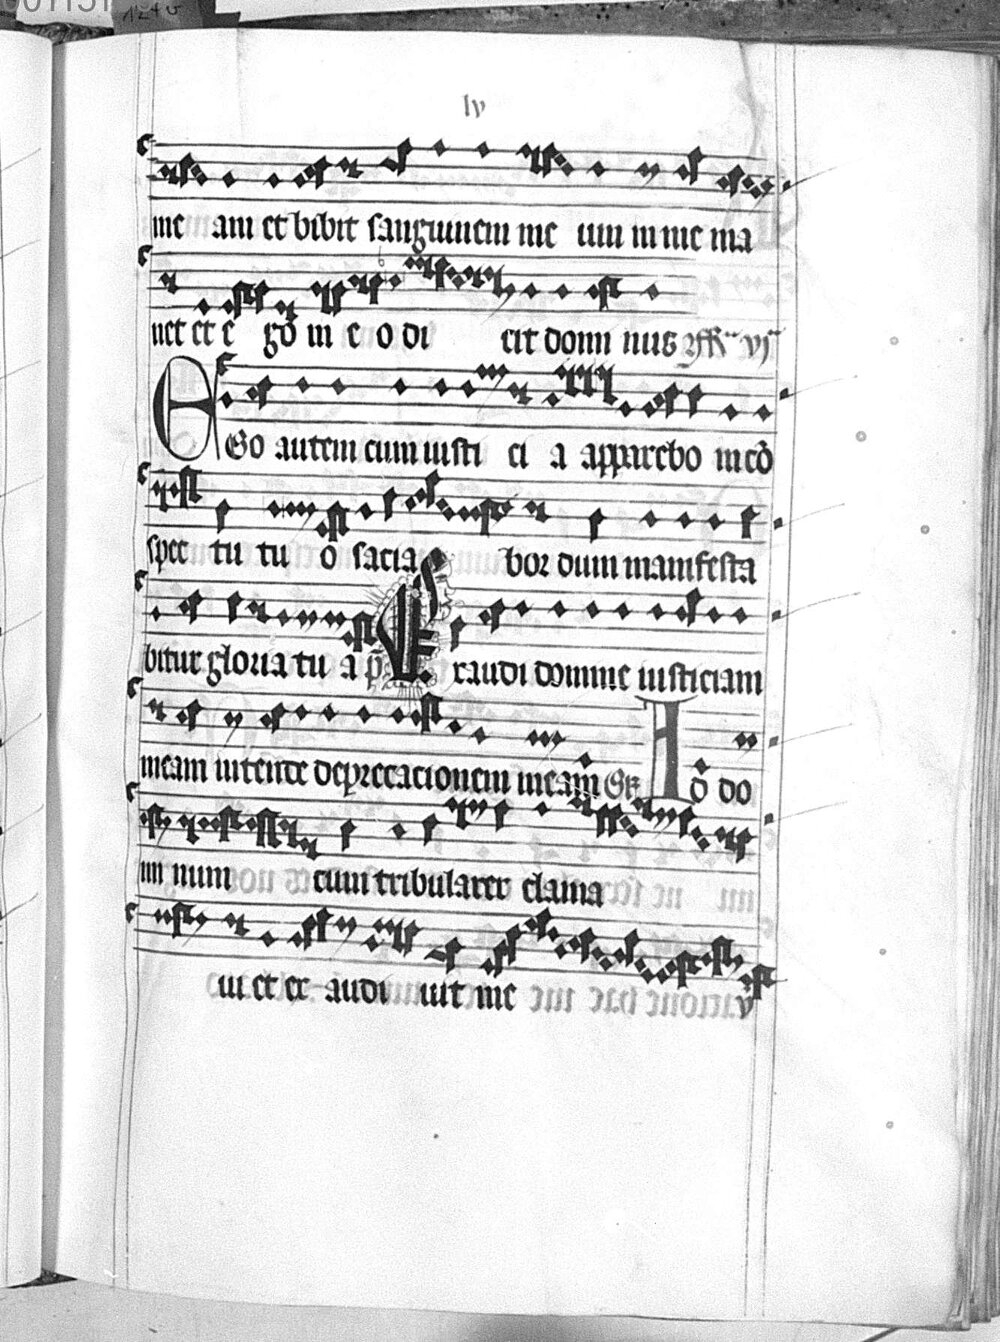 lv
me am et bibit sanguinem me um in me ma
net et e go in e o di cit domi nus
Ego autem cum iusti ci a apparebo in cō
spec tu tu o sacia bor dum manifesta
bitur gloria tu a p̄s Exaudi domine iusticiam
meam intende deprecacionem meam Ad do
mi num cum tribularer clama
ui et ex audi uit me